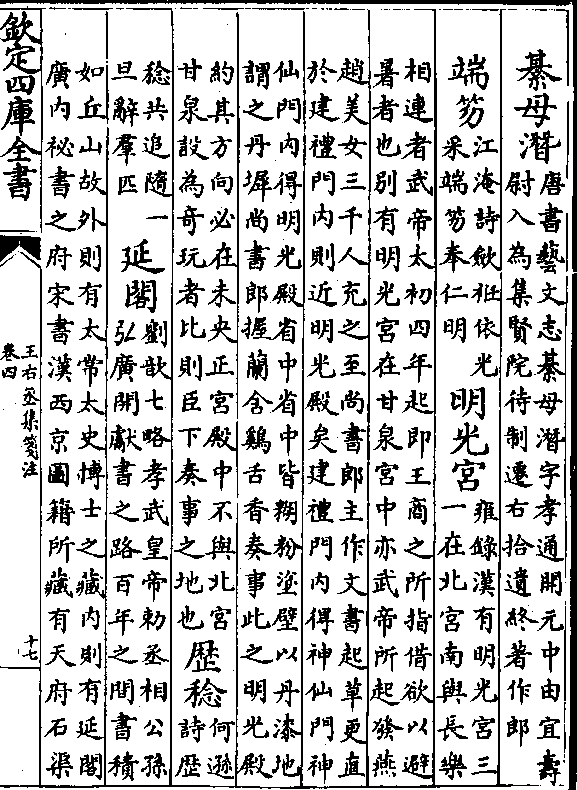 綦母潛唐書藝文志綦母潛字孝通開元中由宜壽
尉入為集賢院待制遷右拾遺終著作郎
端笏江淹詩斂袵依光
采端笏奉仁明
明光宮雍錄漢有明光宮三
一在北宮南與長樂
相連者武帝太初四年起即王商之所指借欲以避
暑者也別有明光宮在甘泉宮中亦武帝所起發燕
趙美女三千人充之至尚書郎主作文書起草更直
於建禮門內則近明光殿矣建禮門內得神仙門神
仙門內得明光殿省中省中皆糊粉塗壁以丹漆地
謂之丹墀尚書郎握蘭含鷄舌香奏事此之明光殿
約其方向必在未央正宮殿中不與北宮
甘泉設為奇玩者比則臣下奏事之地也
歴稔何遜
詩歴
稔共追隨一
旦辭羣匹
延閣劉歆七略孝武皇帝勅丞相公孫
弘廣開獻書之路百年之間書積
如丘山故外則有太常太史博士之藏內則有延閣
廣內祕書之府宋書漢西京圖籍所藏有天府石渠
欽定四庫全書
王右丞集箋注
卷四
十七